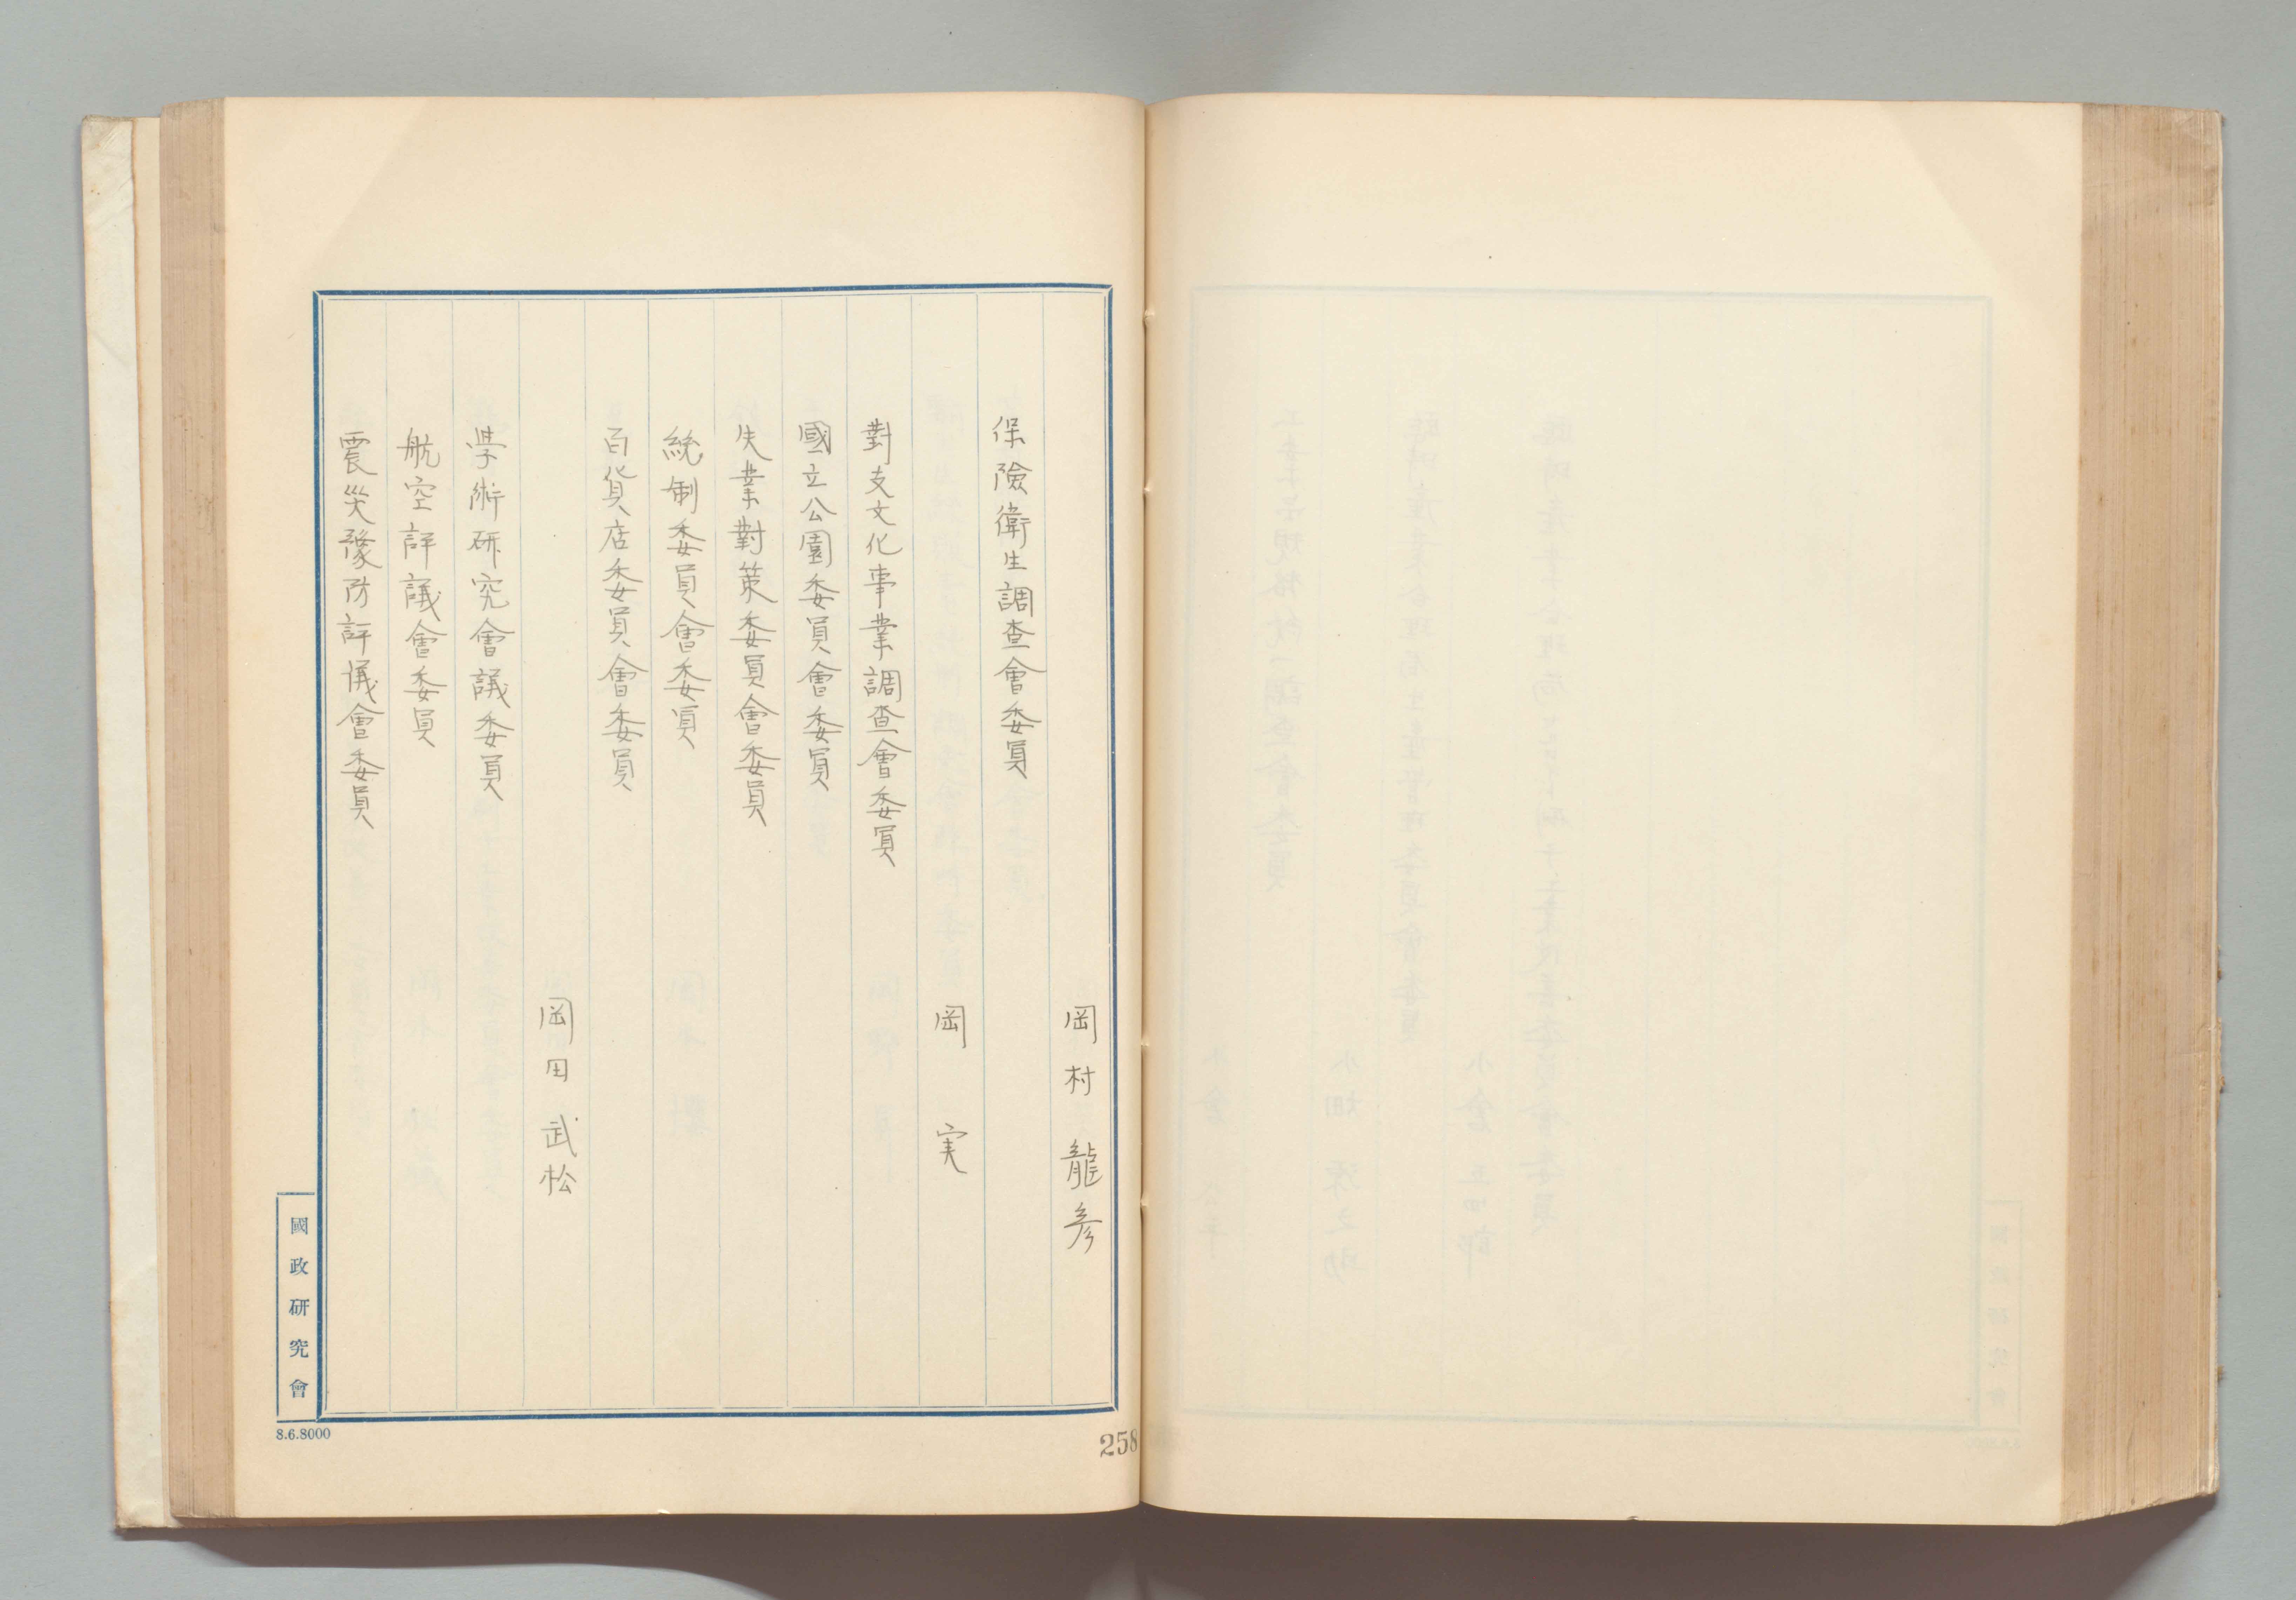 岡村龍彦
保險衛生調査會委員
岡実
對支文化事業調査會委員
國立公園委員會委員
失業對策委員會委員
統制委員會委員
百貨店委員會委員
岡田武松
学術研究會議委員
航空評議會委員
震災豫防評議會委員
國政研究會
8.6.8000
258